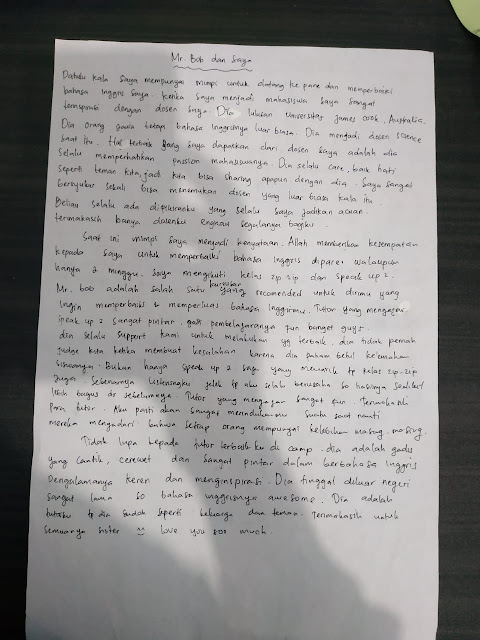 Mr. Bob dan Saya
Dahulu kala saya mempunyai mimpi untuk datang ke pare dan memperbaiki
bahasa inggris saya. Ketika saya menjadi mahasiswa saya sangat
terinspirasi dengan dosen saya. Dia lulusan universitas james cook, Australia.
Dia orang gowa tetapi bahasa Inggrisnya luar biasa. Dia menjadi dosen science
saat itu. Hal terbaik yang saya dapatkan dari dosen saya adalah dia
selalu memperhatikan passion mahasiswanya. Dia selalu care, baik hati
seperti teman kita, jadi kita bisa sharing apapun dengan dia. Saya sangat
bersyukur sekali bisa menemukan dosen yang luar biasa kala itu.
Beliau selalu ada dipikiranku yang selalu saya jadikan acuan.
terimakasih banya dosenku engkau segalanya bagiku.
Saat ini mimpi saya menjadi kenyataan. Allah memberikan kesempatan
kepada saya untuk memperbaiki bahasa Inggris dipare walaupun
hanya 2 minggu. saya mengikuti kelas zip zip dan speak up 2.
Mr. bob adalah salah satu kursusan yang recomended untuk dirimu yang
ingin memperbaiki & memperluas bahasa inggrismu. Tutor yang mengajar
speak up 2 sangat pintar, pembelajaranya fun banget guys.
dia selalu support kami untuk melakukan yg terbaik, dia tidak pernah
judge kita ketika membuat kesalahan karena dia paham betul kelemahan
siswanya. Bukan hanya speak up 2 saja yang menarik tp kelas zip-zip
juga. Sebenarnya listeningku jelek tp aku selalu berusaha so hasilnya sedikit
lebih bagus dr sebelumnya. Tutor yang mengajar sangat fun. Terimakasih
Para tutor. Aku pasti akan sangat merindukanmu suatu saat nanti
mereka mengajari bahwa setiap orang mempunyai kelebihan masing-masing.
Tidak lupa kepada tutor terbaikku di camp. dia adalah gadis
yang cantik, cerewet dan sangat pintar dalam berbahasa inggris
Pengalamanya keren dan menginspirasi. Dia tinggal diluar negeri
sangat lama so bahasa inggrisnya awesome. Dia adalah
tutorku tp dia sudah seperti keluarga dan teman. Terimakasih untuk
semuanya sister love you soo much.